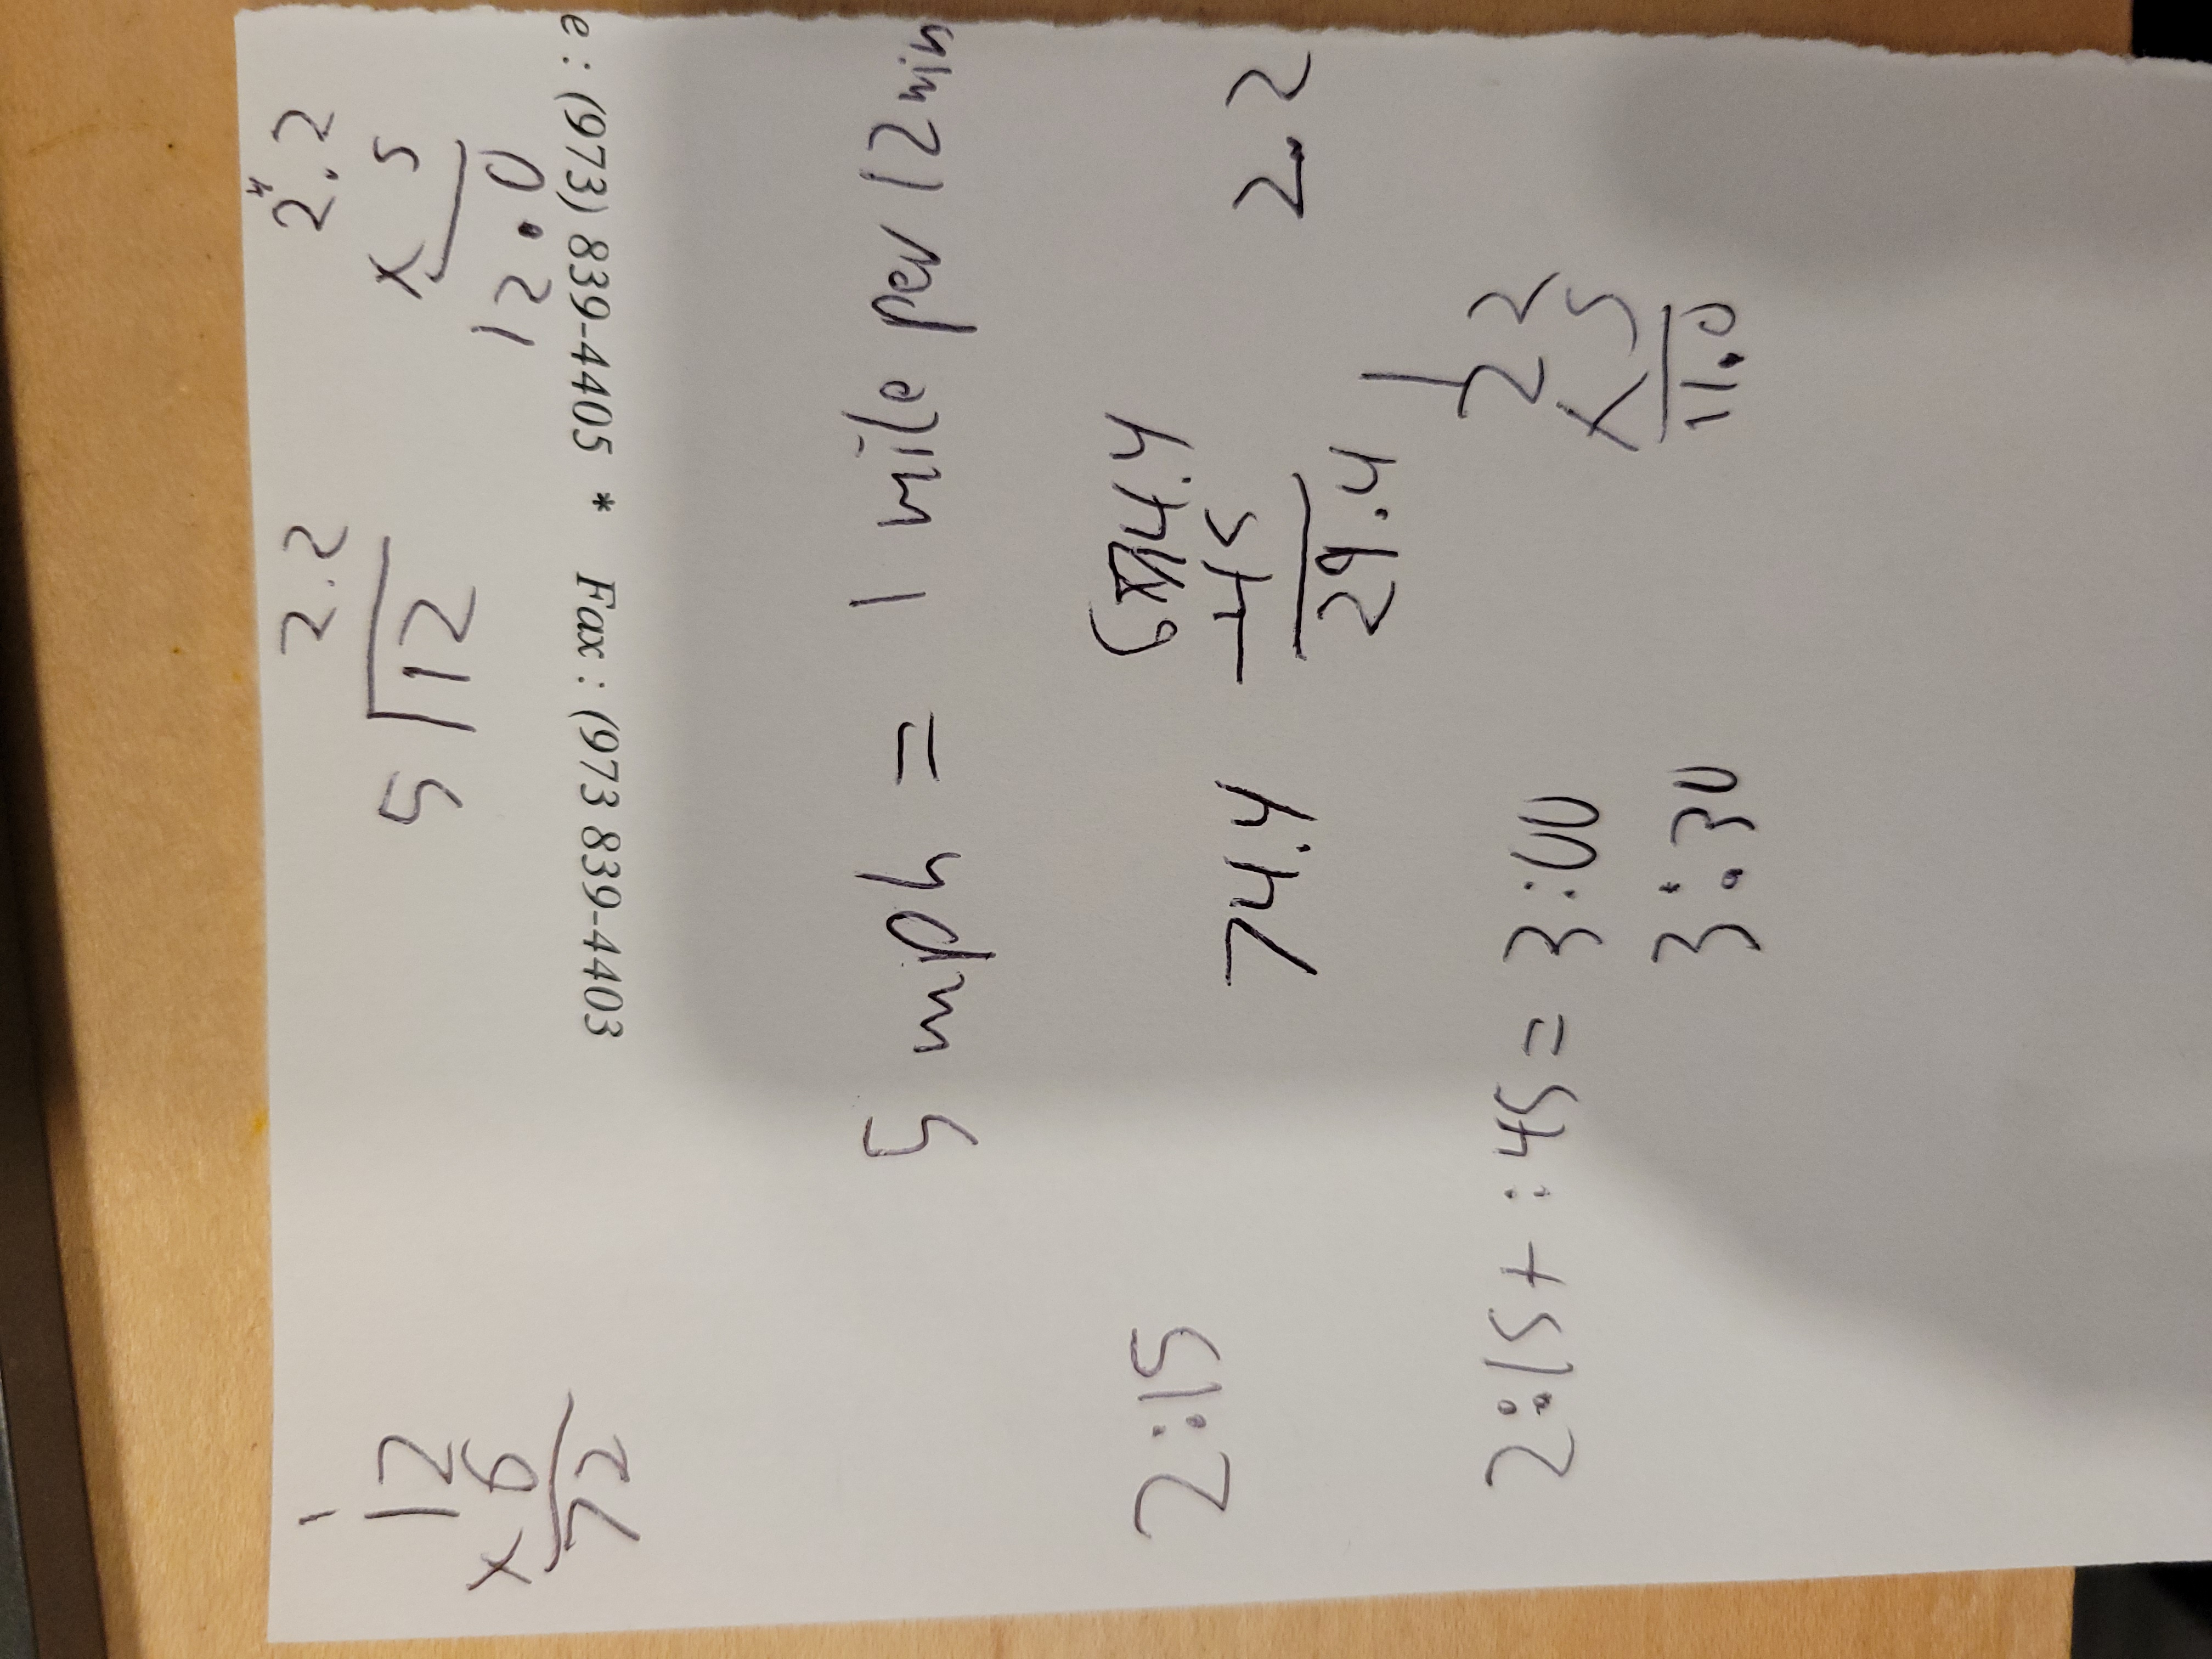 2.2
2.2
5 12
x 5
12.0
1
12
x 6
72
e: (973) 839-4405 * Fax: (973 839-4403
5 mph = 1 mile per 12 min
2:15
74.4
74.4
- 45
29.4
2.2
2:15 + :45 = 3:00
3:30
1
22
x 5
11.0